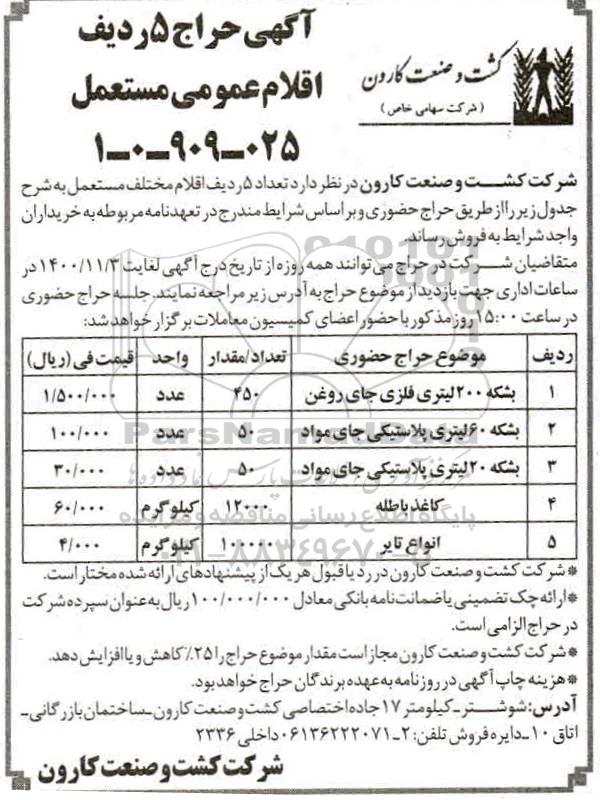 آگهی حراج ۵ ردیف
اقلام عمومی مستعمل
۱-۰-۹۰۹-۰۲۵
کشت و صنعت کارون
(شرکت سهامی خاص)
شرکت کشت و صنعت کارون در نظر دارد تعداد ۵ ردیف اقلام مختلف مستعمل به شرح
جدول زیر را از طریق حراج حضوری و بر اساس شرایط مندرج در تعهدنامه مربوطه به خریداران
واجد شرایط به فروش رساند.
متقاضیان شرکت در حراج می توانند همه روزه از تاریخ درج آگهی لغایت ۱۴۰۰/۱۱/۳ در
ساعات اداری جهت بازدید از موضوع حراج به آدرس زیر مراجعه نمایند. جلسه حراج حضوری
در ساعت ۱۵:۰۰ روز مذکور با حضور اعضای کمیسیون معاملات برگزار خواهد شد:
ردیف موضوع حراج حضوری تعداد/مقدار واحد قیمت فی (ریال)
۱ بشکه ۲۰۰ لیتری فلزی جای روغن ۴۵۰ عدد ۱/۵۰۰/۰۰۰
۲ بشکه ۶۰ لیتری پلاستیکی جای مواد ۵۰ عدد ۱۰۰/۰۰۰
۳ بشکه ۲۰ لیتری پلاستیکی جای مواد ۵۰ عدد ۳۰/۰۰۰
۴ کاغذ باطله ۱۲۰۰۰ کیلوگرم ۶۰/۰۰۰
۵ انواع تایر ۱۰۰۰۰۰ کیلوگرم ۴/۰۰۰
*شرکت کشت و صنعت کارون در رد یا قبول هر یک از پیشنهادهای ارائه شده مختار است.
*ارائه چک تضمینی یا ضمانت نامه بانکی معادل ۱۰۰/۰۰۰/۰۰۰ ریال به عنوان سپرده شرکت
در حراج الزامی است.
*شرکت کشت و صنعت کارون مجاز است مقدار موضوع حراج را ۲۵٪ کاهش و یا افزایش دهد.
*هزینه چاپ آگهی در روزنامه به عهده برندگان حراج خواهد بود.
آدرس: شوشتر-کیلومتر ۱۷ جاده اختصاصی کشت و صنعت کارون-ساختمان بازرگانی-
اتاق ۱۰-دایره فروش تلفن: ۲-۰۶۱۳۶۲۲۲۰۷۱ داخلی ۲۳۳۶
شرکت کشت و صنعت کارون
ParsNamadData
پایگاه اطلاع رسانی مناقصه و مزایده
۰۲۱-۸۸۳۴۹۶۷۰